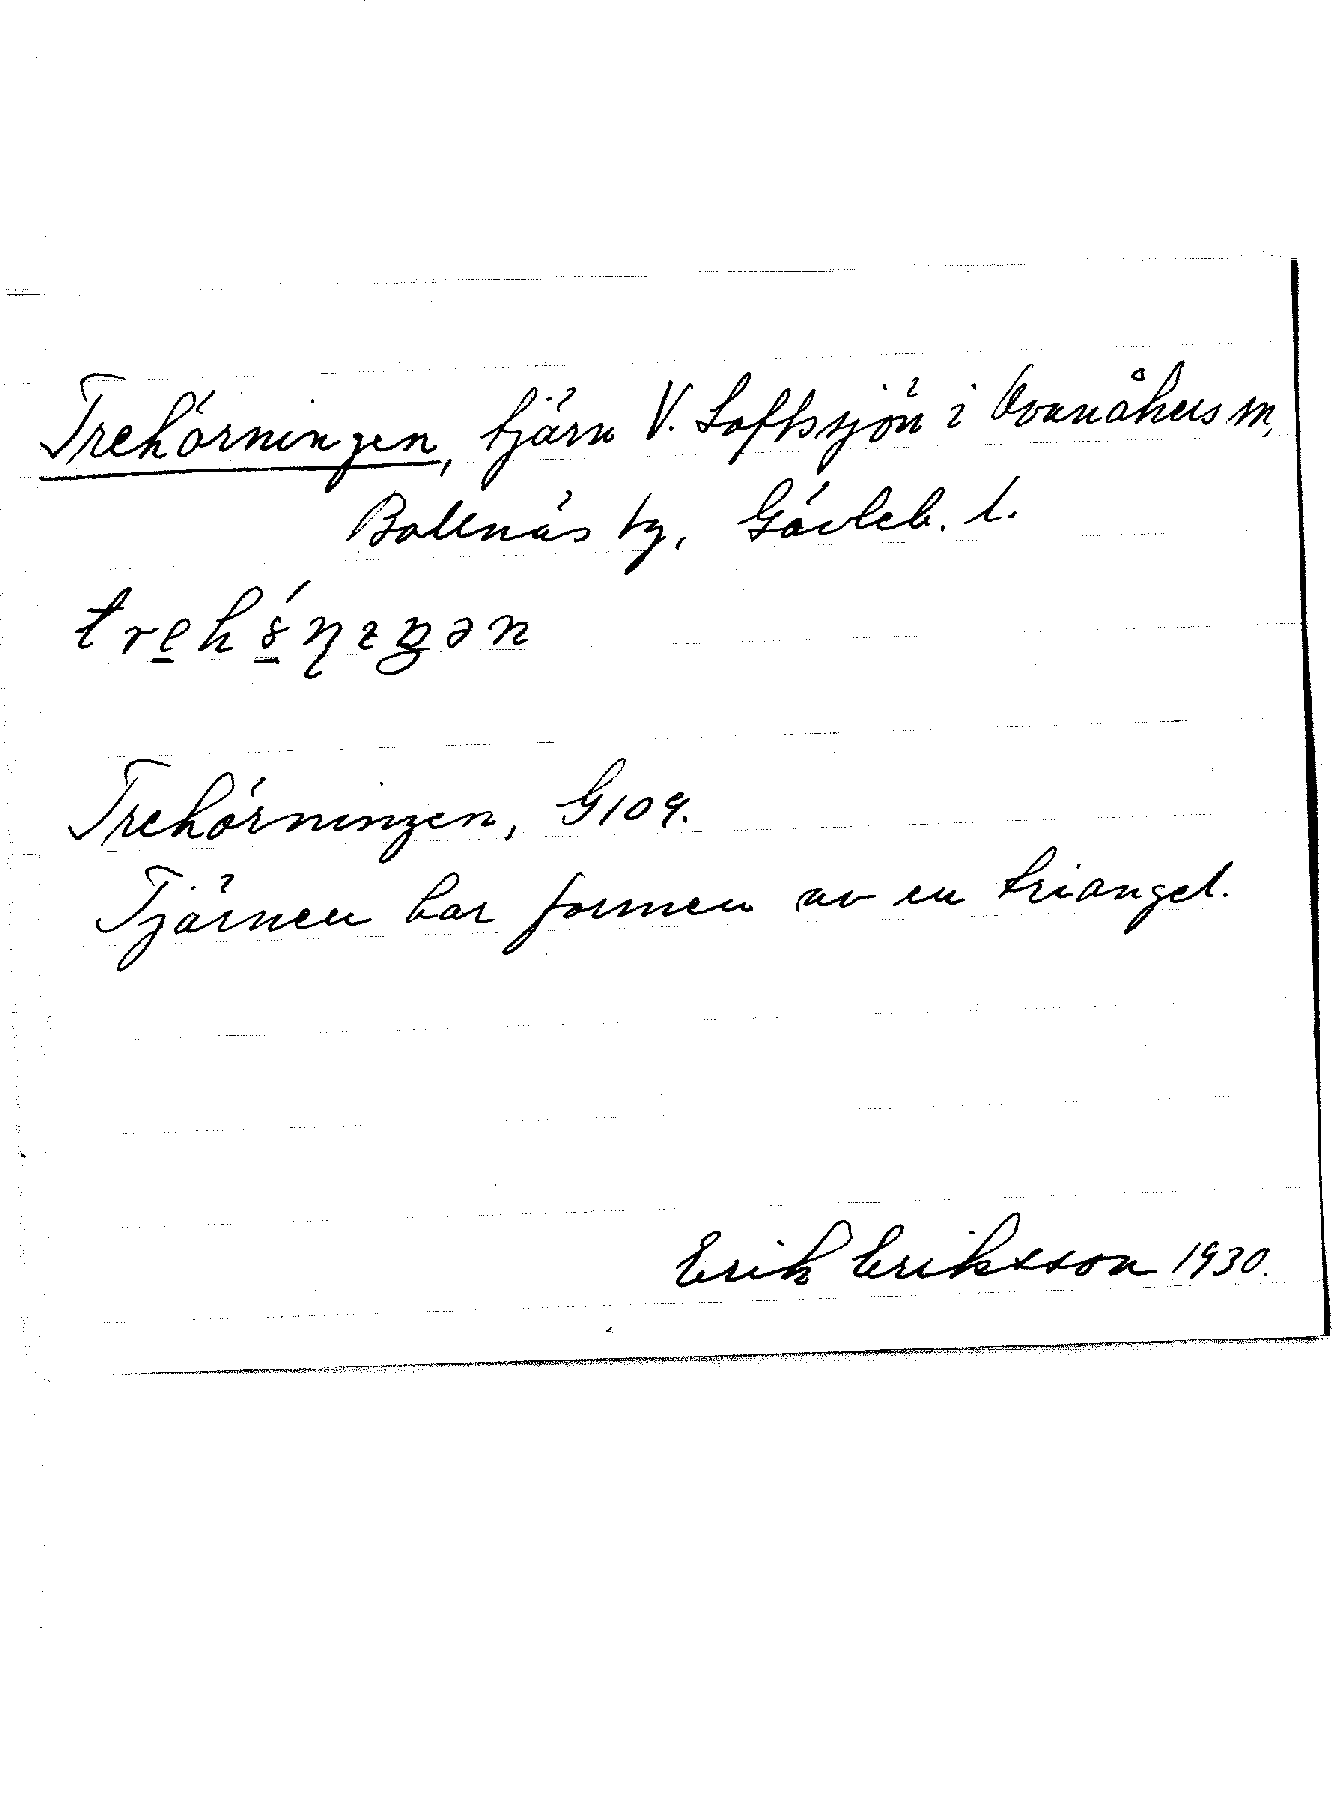 Trehörningen, tjärn V. Loftssjön i Ovanåkers sn,
Bollnäs tg, Gävleb. l.
Trehörningen, G109.
Tjärnen har formen av en triangel.
Erik Eriksson 1930.